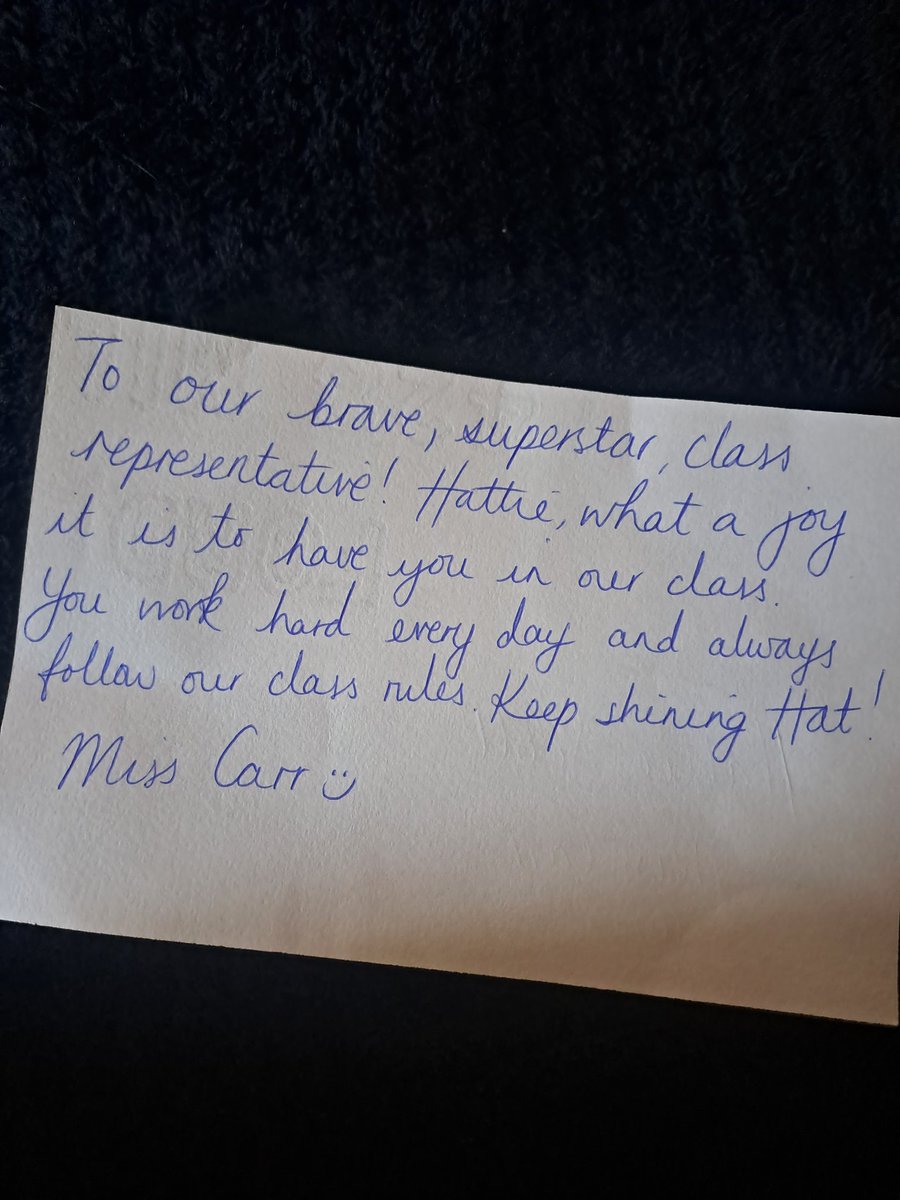 To our brave, superstar, class
representative! Hattie, what a joy
it is to have you in our class.
You work hard every day and always
follow our class rules. Keep shining Hat!
Miss Carr :)